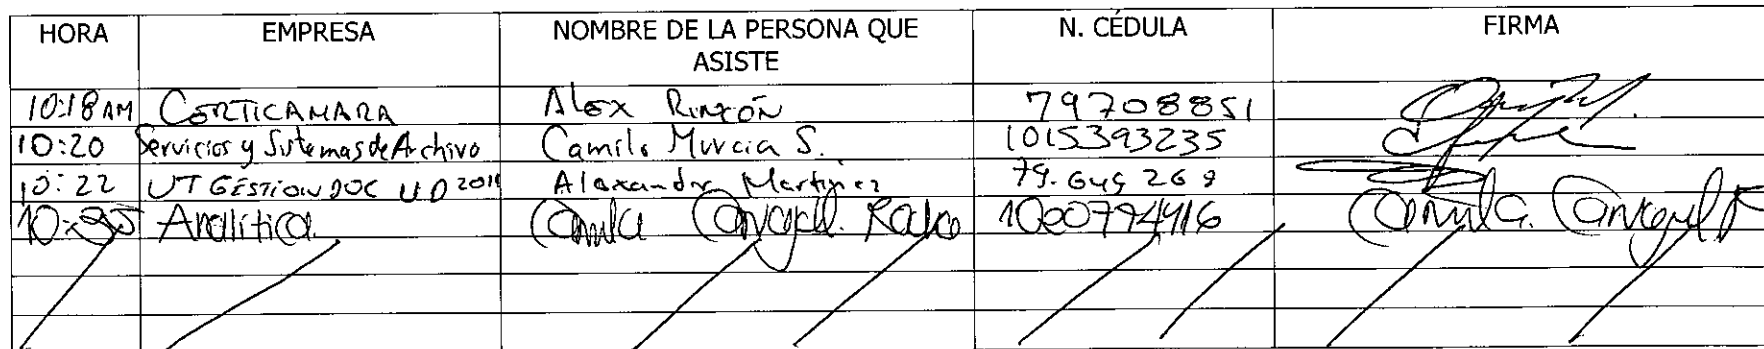 HORA EMPRESA NOMBRE DE LA PERSONA QUE ASISTE N. CÉDULA FIRMA
10:18 AM CERTICAMARA Alex Rincón 79708851
10:20 Servicios y Sistemas de Archivo Camilo Murcia S. 1015393235
10:22 UT GESTION DOC UD Alexandra Martinez 79.649 269
Analítica. Camila Carvajal. 1000794416 Camila. Carvajal